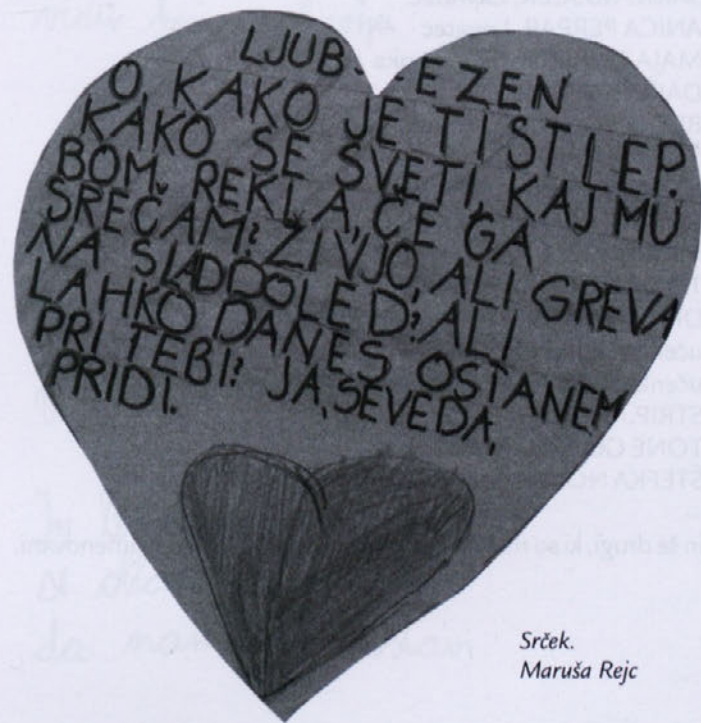 LJUBEZEN
O KAKO JE TISTI LEP.
KAKO SE SVETI, KAJ MU
BOM REKLA, ČE GA
SREČAM? ŽIVJO, ALI GREVA
NA SLADDOLED? ALI
LAHKO DANES OSTANEM
PRI TEBI? JA, SEVEDA,
PRIDI.
Srček.
Maruša Rejc